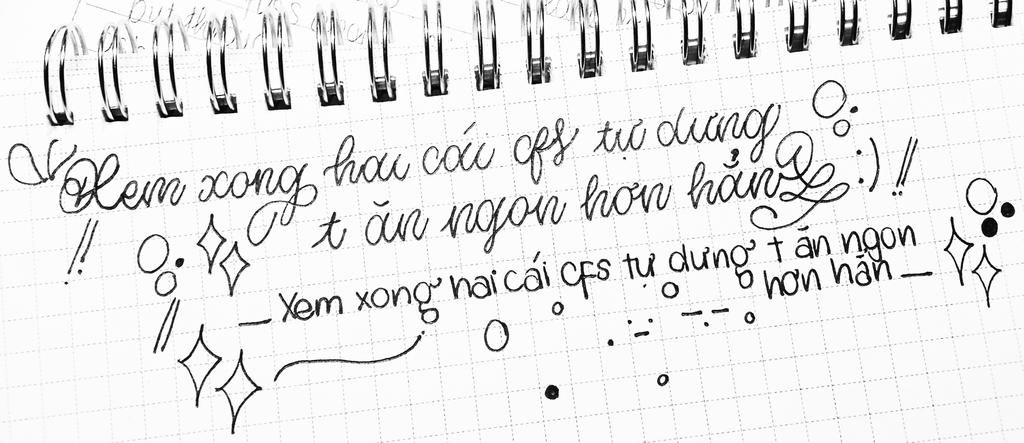 Xem xong hai cái cfs tự dưng
t ăn ngon hơn hẳn :) !!
!!
_ Xem xong hai cái cfs tự dưng t ăn ngon
hơn hẳn _